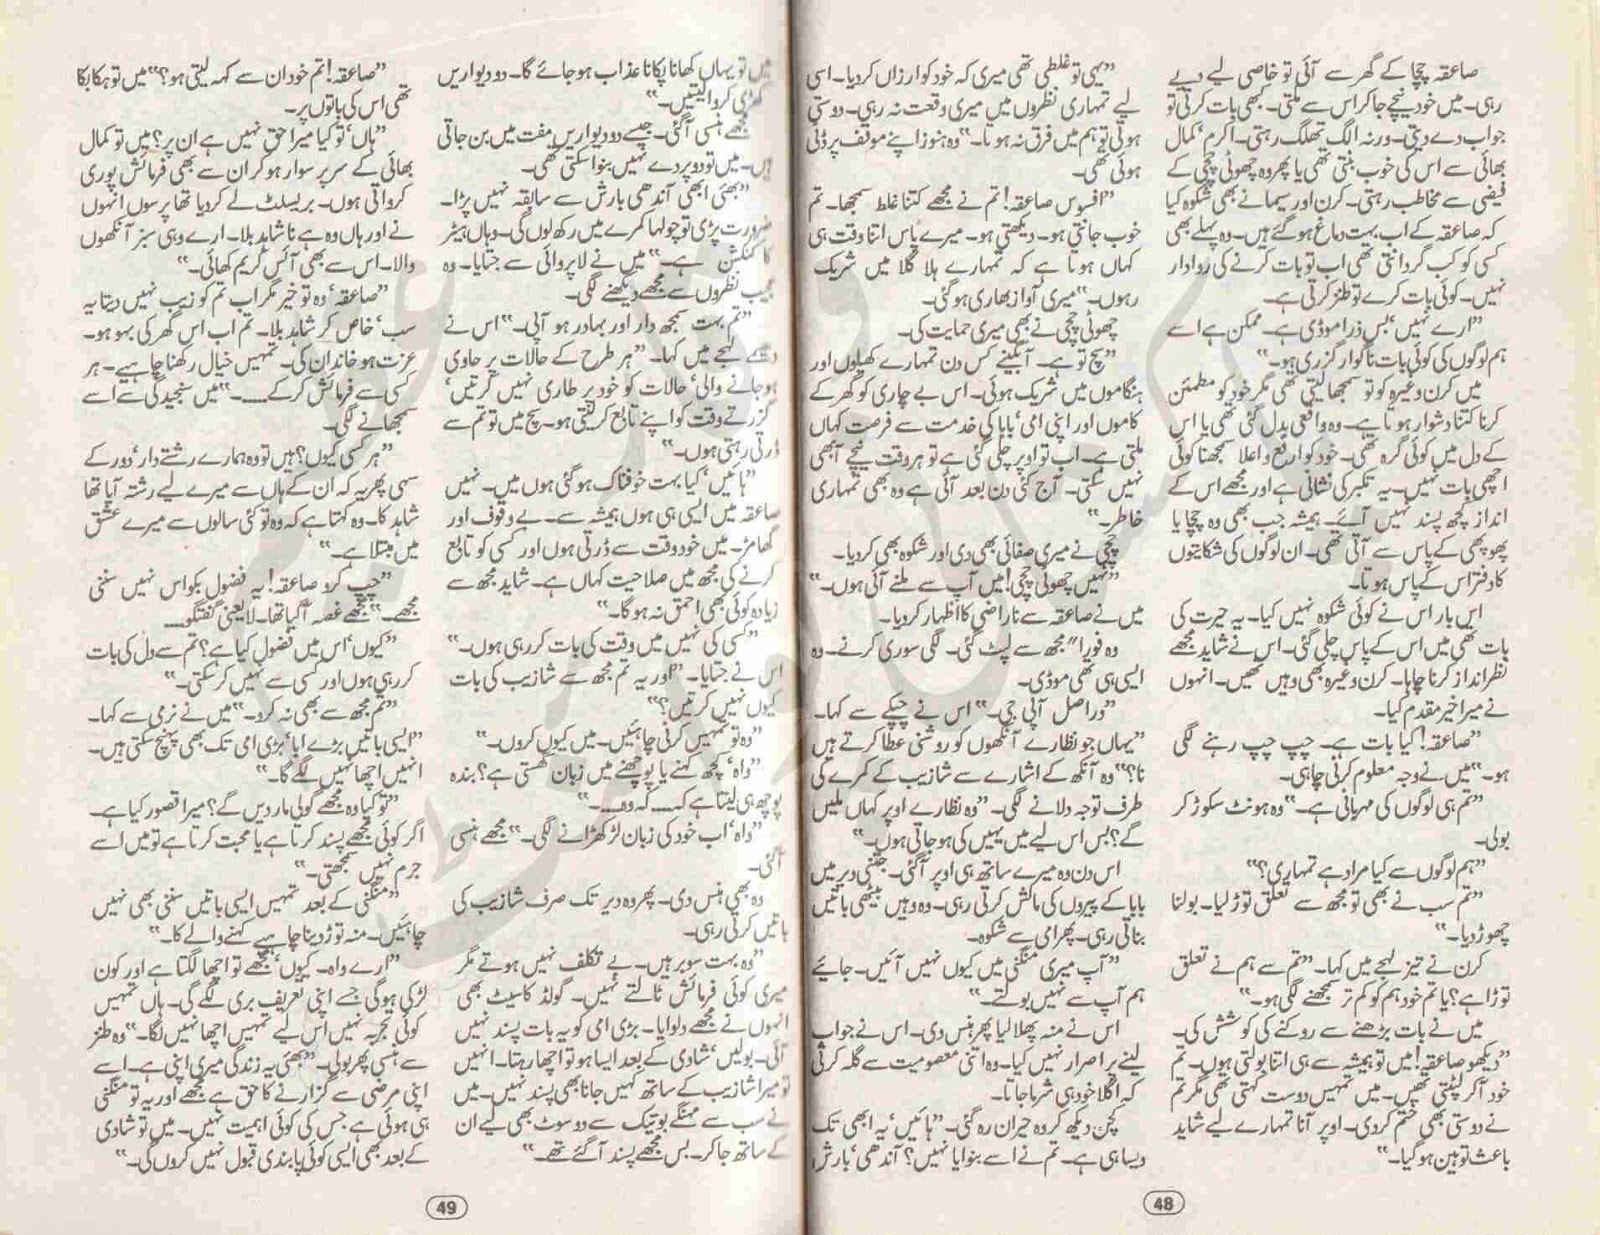 صاعقہ چچا کے گھر سے آئی تو خاصی لیے دیے
رہی۔ میں خود نیچے جا کر اس سے ملتی۔ کبھی بات کرتی تو
جواب دے دیتی۔ ورنہ الگ تھلگ رہتی۔ اکرم، کمال
بھائی سے اس کی خوب بنتی تھی یا پھر وہ چھوٹی چچی کے
فیضی سے مخاطب رہتی۔ کرن اور سیما نے بھی شکوہ کیا
کہ صاعقہ کے اب بہت دماغ ہو گئے ہیں۔ وہ پہلے بھی
کسی کو کب گردانتی تھی اب تو بات کرنے کی روادار
نہیں۔ کوئی بات کرے تو طنز کرتی ہے۔
”ارے نہیں، بس ذرا موڈی ہے۔ ممکن ہے اسے
ہم لوگوں کی کوئی بات ناگوار گزری ہو۔“
میں کرن وغیرہ کو تو سمجھا لیتی تھی مگر خود کو مطمئن
کرنا کتنا دشوار ہوتا ہے۔ وہ واقعی بدل گئی تھی یا اس
کے دل میں کوئی گرہ تھی۔ خود کو ارفع و اعلا سمجھنا کوئی
اچھی بات نہیں۔ یہ تکبر کی نشانی ہے اور مجھے اس کے
انداز کچھ پسند نہیں آئے۔ ہمیشہ جب بھی وہ چچا یا
پھوپھی کے پاس سے آتی تھی۔ ان لوگوں کی شکایتوں
کا دفتر اس کے پاس ہوتا۔
اس بار اس نے کوئی شکوہ نہیں کیا۔ یہ حیرت کی
بات تھی میں اس کے پاس چلی گئی۔ اس نے شاید مجھے
نظر انداز کرنا چاہا۔ کرن وغیرہ بھی وہیں تھیں۔ انہوں
نے میرا خیر مقدم کیا۔
”صاعقہ! کیا بات ہے۔ چپ چپ رہنے لگی
ہو۔“ میں نے وجہ معلوم کرنی چاہی۔
”تم ہی لوگوں کی مہربانی ہے۔“ وہ ہونٹ سکوڑ کر
بولی۔
”ہم لوگوں سے کیا مراد ہے تمہاری؟“
”تم سب نے بھی تو مجھ سے تعلق توڑ لیا۔ بولنا
چھوڑ دیا۔“
کرن نے تیز لہجے میں کہا۔ ”تم سے ہم نے تعلق
توڑا ہے؟ یا تم خود ہم کو کم تر سمجھنے لگی ہو۔“
میں نے بات بڑھنے سے روکنے کی کوشش کی۔
”دیکھو صاعقہ! میں تو ہمیشہ سے ہی اتنا بولتی ہوں۔ تم
خود آ کر لپٹتی تھیں۔ میں تمہیں دوست کہتی تھی مگر تم
نے دوستی بھی ختم کر دی۔ اوپر آنا تمہارے لیے شاید
باعث توہین ہو گیا۔“
”یہی تو غلطی تھی میری کہ خود کو ارزاں کر دیا۔ اسی
لیے تمہاری نظروں میں میری وقعت نہ رہی۔ دوستی
ہوتی تو ہم میں فرق نہ ہوتا۔“ وہ ہنوز اپنے موقف پر ڈٹی
ہوئی تھی۔
”افسوس صاعقہ! تم نے مجھے کتنا غلط سمجھا۔ تم
خوب جانتی ہو۔ دیکھتی ہو۔ میرے پاس اتنا وقت ہی
کہاں ہوتا ہے کہ تمہارے ہلا گلا میں شریک
رہوں۔“ میری آواز بھاری ہو گئی۔
چھوٹی چچی نے بھی میری حمایت کی۔
”سچ تو ہے۔ آبگینے کس دن تمہارے کھیلوں اور
ہنگاموں میں شریک ہوئی۔ اس بے چاری کو گھر کے
کاموں اور اپنی امی، بابا کی خدمت سے فرصت کہاں
ملتی ہے۔ اب تو اوپر چلی گئی ہے تو ہر وقت نیچے آ بھی
نہیں سکتی۔ آج کئی دن بعد آئی ہے وہ بھی تمہاری
خاطر۔“
چچی نے میری صفائی بھی دی اور شکوہ بھی کر دیا۔
”نہیں چھوٹی چچی! میں آپ سے ملنے آئی ہوں۔“
میں نے صاعقہ سے ناراضی کا اظہار کر دیا۔
وہ فوراً مجھ سے لپٹ گئی۔ لگی سوری کرنے۔ وہ
ایسی ہی تھی موڈی۔
”دراصل آپی جی۔“ اس نے چپکے سے کہا۔
”یہاں جو نظارے آنکھوں کو روشنی عطا کرتے ہیں
نا؟“ وہ آنکھ کے اشارے سے شازیب کے کمرے کی
طرف توجہ دلانے لگی۔ ”وہ نظارے اوپر کہاں ملیں
گے؟ بس اس لیے میں یہیں کی ہو جاتی ہوں۔“
اس دن وہ میرے ساتھ ہی اوپر آ گئی۔ جتنی دیر میں
بابا کے پیروں کی مالش کرتی رہی۔ وہ وہیں بیٹھی باتیں
بناتی رہی۔ پھر امی سے شکوہ۔
”آپ میری منگنی میں کیوں نہیں آئیں۔ جائیے
ہم آپ سے نہیں بولتے۔“
اس نے منہ پھلا لیا پھر ہنس دی۔ اس نے جواب
لینے پر اصرار نہیں کیا۔ وہ اتنی معصومیت سے گلہ کرتی
کہ اگلا خود ہی شرما جاتا۔
کچن دیکھ کر وہ حیران رہ گئی۔ ”ہائیں، یہ ابھی تک
ویسا ہی ہے۔ تم نے اسے بنوایا نہیں؟ آندھی، بارش
48
میں تو یہاں کھانا پکانا عذاب ہو جائے گا۔ دو دیواریں
کھڑی کروا لیتیں۔“
مجھے ہنسی آ گئی۔ جیسے دو دیواریں مفت میں بن جاتی
ہیں۔ میں تو دو پردے نہیں بنوا سکتی تھی۔
”بھئی ابھی آندھی بارش سے سابقہ نہیں پڑا۔
ضرورت پڑی تو چولہا کمرے میں رکھ لوں گی۔ وہاں ہیٹر
کا کنکشن ہے۔“ میں نے لاپروائی سے جتایا۔ وہ
عجیب نظروں سے مجھے دیکھنے لگی۔
”تم بہت سمجھ دار اور بہادر ہو آپی۔“ اس نے
دھیمے لہجے میں کہا۔ ”ہر طرح کے حالات پر حاوی
ہو جانے والی، حالات کو خود پر طاری نہیں کرتیں،
گزرتے وقت کو اپنے تابع کر لیتی ہو۔ سچ میں تو تم سے
ڈرتی رہتی ہوں۔“
”ہائیں، کیا بہت خوفناک ہو گئی ہوں میں۔ نہیں
صاعقہ میں ایسی ہی ہوں ہمیشہ سے۔ بے وقوف اور
گھامڑ۔ میں خود وقت سے ڈرتی ہوں اور کسی کو تابع
کرنے کی مجھ میں صلاحیت کہاں ہے۔ شاید مجھ سے
زیادہ کوئی بھی احمق نہ ہو گا۔“
”کسی کی نہیں میں وقت کی بات کر رہی ہوں۔“
اس نے جتایا۔ ”اور یہ تم مجھ سے شازیب کی بات
کیوں نہیں کرتیں؟“
”وہ تو تمہیں کرنی چاہئیں۔ میں کیوں کروں۔“
”واہ، کچھ کہنے یا پوچھنے میں زبان گھستی ہے؟ بندہ
پوچھ ہی لیتا ہے کہ..... کہ وہ.....“
”واہ، اب خود کی زبان لڑکھڑانے لگی۔“ مجھے ہنسی
آ گئی۔
وہ بھی ہنس دی۔ پھر وہ دیر تک صرف شازیب کی
باتیں کرتی رہی۔
”وہ بہت سوبر ہیں۔ بے تکلف نہیں ہوتے مگر
میری کوئی فرمائش ٹالتے نہیں۔ گولڈ کا سیٹ بھی
انہوں نے مجھے دلوایا۔ بڑی امی کو یہ بات پسند نہیں
آئی۔ بولیں، شادی کے بعد ایسا ہو تو اچھا رہتا۔ انہیں
تو میرا شازیب کے ساتھ کہیں جانا بھی پسند نہیں۔ میں
نے سب سے مہنگے بوتیک سے دو سوٹ بھی لیے ان
کے ساتھ جا کر۔ بس مجھے پسند آ گئے تھے۔“
”صاعقہ! تم خود ان سے کہہ لیتی ہو؟“ میں تو ہکا بکا
تھی اس کی باتوں پر۔
”ہاں، تو کیا میرا حق نہیں ہے ان پر؟ میں تو کمال
بھائی کے سر پر سوار ہو کر ان سے بھی فرمائش پوری
کرواتی ہوں۔ بریسلٹ لے کر دیا تھا پرسوں انہوں
نے اور ہاں وہ ہے نا شاہد بلا۔ ارے وہی سبز آنکھوں
والا۔ اس سے بھی آئس کریم کھائی۔“
”صاعقہ، وہ تو خیر مگر اب تم کو زیب نہیں دیتا یہ
سب، خاص کر شاہد بلا۔ تم اب اس گھر کی بہو ہو۔
عزت ہو خاندان کی۔ تمہیں خیال رکھنا چاہیے۔ ہر
کسی سے فرمائش کر کے.....“ میں سنجیدگی سے اسے
سمجھانے لگی۔
”ہر کسی کیوں؟ ہیں تو وہ ہمارے رشتے دار، دور کے
سہی پھر یہ کہ ان کے ہاں سے میرے لیے رشتہ آیا تھا
شاہد کا۔ وہ کہتا ہے کہ وہ تو کئی سالوں سے میرے عشق
میں مبتلا ہے۔“
”چپ کرو صاعقہ! یہ فضول بکواس نہیں سننی
مجھے۔“ مجھے غصہ آ گیا تھا۔ لایعنی گفتگو.....
”کیوں، اس میں فضول کیا ہے؟ تم سے دل کی بات
کر رہی ہوں اور کسی سے نہیں کر سکتی۔“
”تم مجھ سے بھی نہ کرو۔“ میں نے نرمی سے کہا۔
”ایسی باتیں بڑے ابا، بڑی امی تک بھی پہنچ سکتی ہیں۔
انہیں اچھا نہیں لگے گا۔“
”تو کیا وہ مجھے گولی مار دیں گے؟ میرا قصور کیا ہے۔
اگر کوئی مجھے پسند کرتا ہے یا محبت کرتا ہے تو میں اسے
جرم نہیں سمجھتی۔“
”منگنی کے بعد تمہیں ایسی باتیں سننی بھی نہیں
چاہئیں۔ منہ توڑ دینا چاہیے کہنے والے کا۔“
”ارے واہ۔ کیوں، مجھے تو اچھا لگتا ہے اور کون
لڑکی ہو گی جسے اپنی تعریف بری لگے گی۔ ہاں تمہیں
کوئی تجربہ نہیں اس لیے تمہیں اچھا نہیں لگا۔“ وہ طنز
سے ہنسی پھر بولی۔ ”بھئی یہ زندگی میری اپنی ہے۔ اسے
اپنی مرضی سے گزارنے کا حق ہے مجھے اور یہ تو منگنی
ہی ہوئی ہے جس کی کوئی اہمیت نہیں۔ میں تو شادی
کے بعد بھی ایسی کوئی پابندی قبول نہیں کروں گی۔“
49